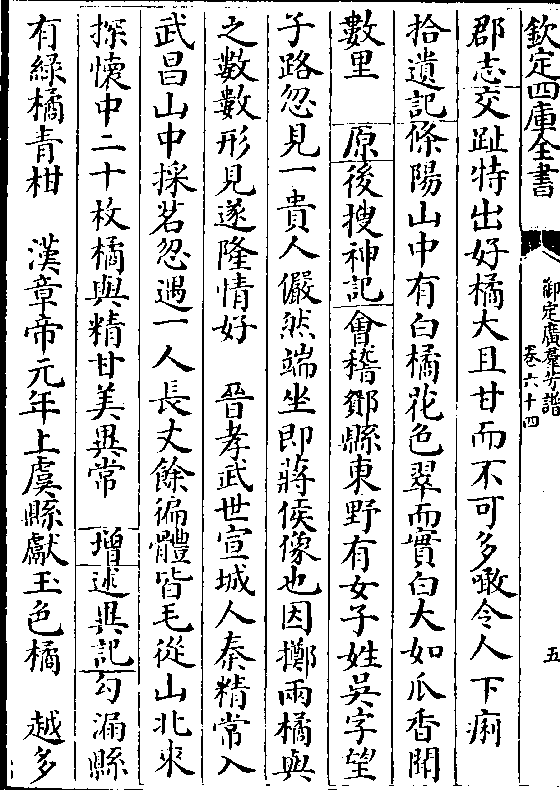 欽定四庫全書
御定廣羣芳譜
卷六十四
五
郡志交趾特出好橘大且甘而不可多噉令人下痢
拾遺記條陽山中有白橘花色翠而實白大如瓜香聞
數里　原後搜神記會稽鄮縣東野有女子姓吳字望
子路忽見一貴人儼然端坐即蔣侯像也因擲兩橘與
之數數形見遂隆情好　晉孝武世宣城人秦精常入
武昌山中採茗忽遇一人長丈餘徧體皆毛從山北來
探懷中二十枚橘與精甘美異常　增述異記勾漏縣
有綠橘青柑　漢章帝元年上虞縣獻玉色橘　越多